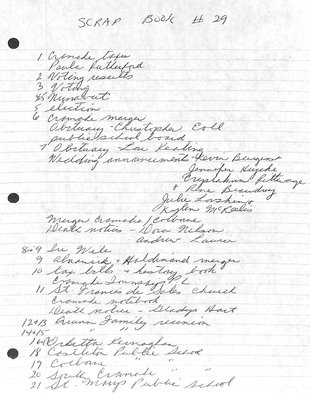 SCRAP BOOK # 29
1 Cramahe taxes
Paula Rutherford
2 Voting results
3 Voting
4&5 Runabout
5 election
6 Cramahe merger
Obituary - Christopher Coll
public school board
7 Obituary - Lou Keating
Wedding announcements - Kevin Burgess &
Jennifer
& Rene Brawding
Julie &
Kaylen
Merger Cramahe / Colborne
Death notices - Dora Nelson
Andrew Laurie
8&9 Ire Wile
9 Alnwick & Haldimand merger
10 tax bills & history book
Cramahe Township P L
11 St. Francis de Sales Church
Cramahe notebook
Death notice - Gladys Hart
12&13 Quinn Family reunion
14&15 " " "
16&17 Kernaghan
18 Castleton Public School
19 Colborne " "
20 South Cramahe " "
21 St. Marys Public School